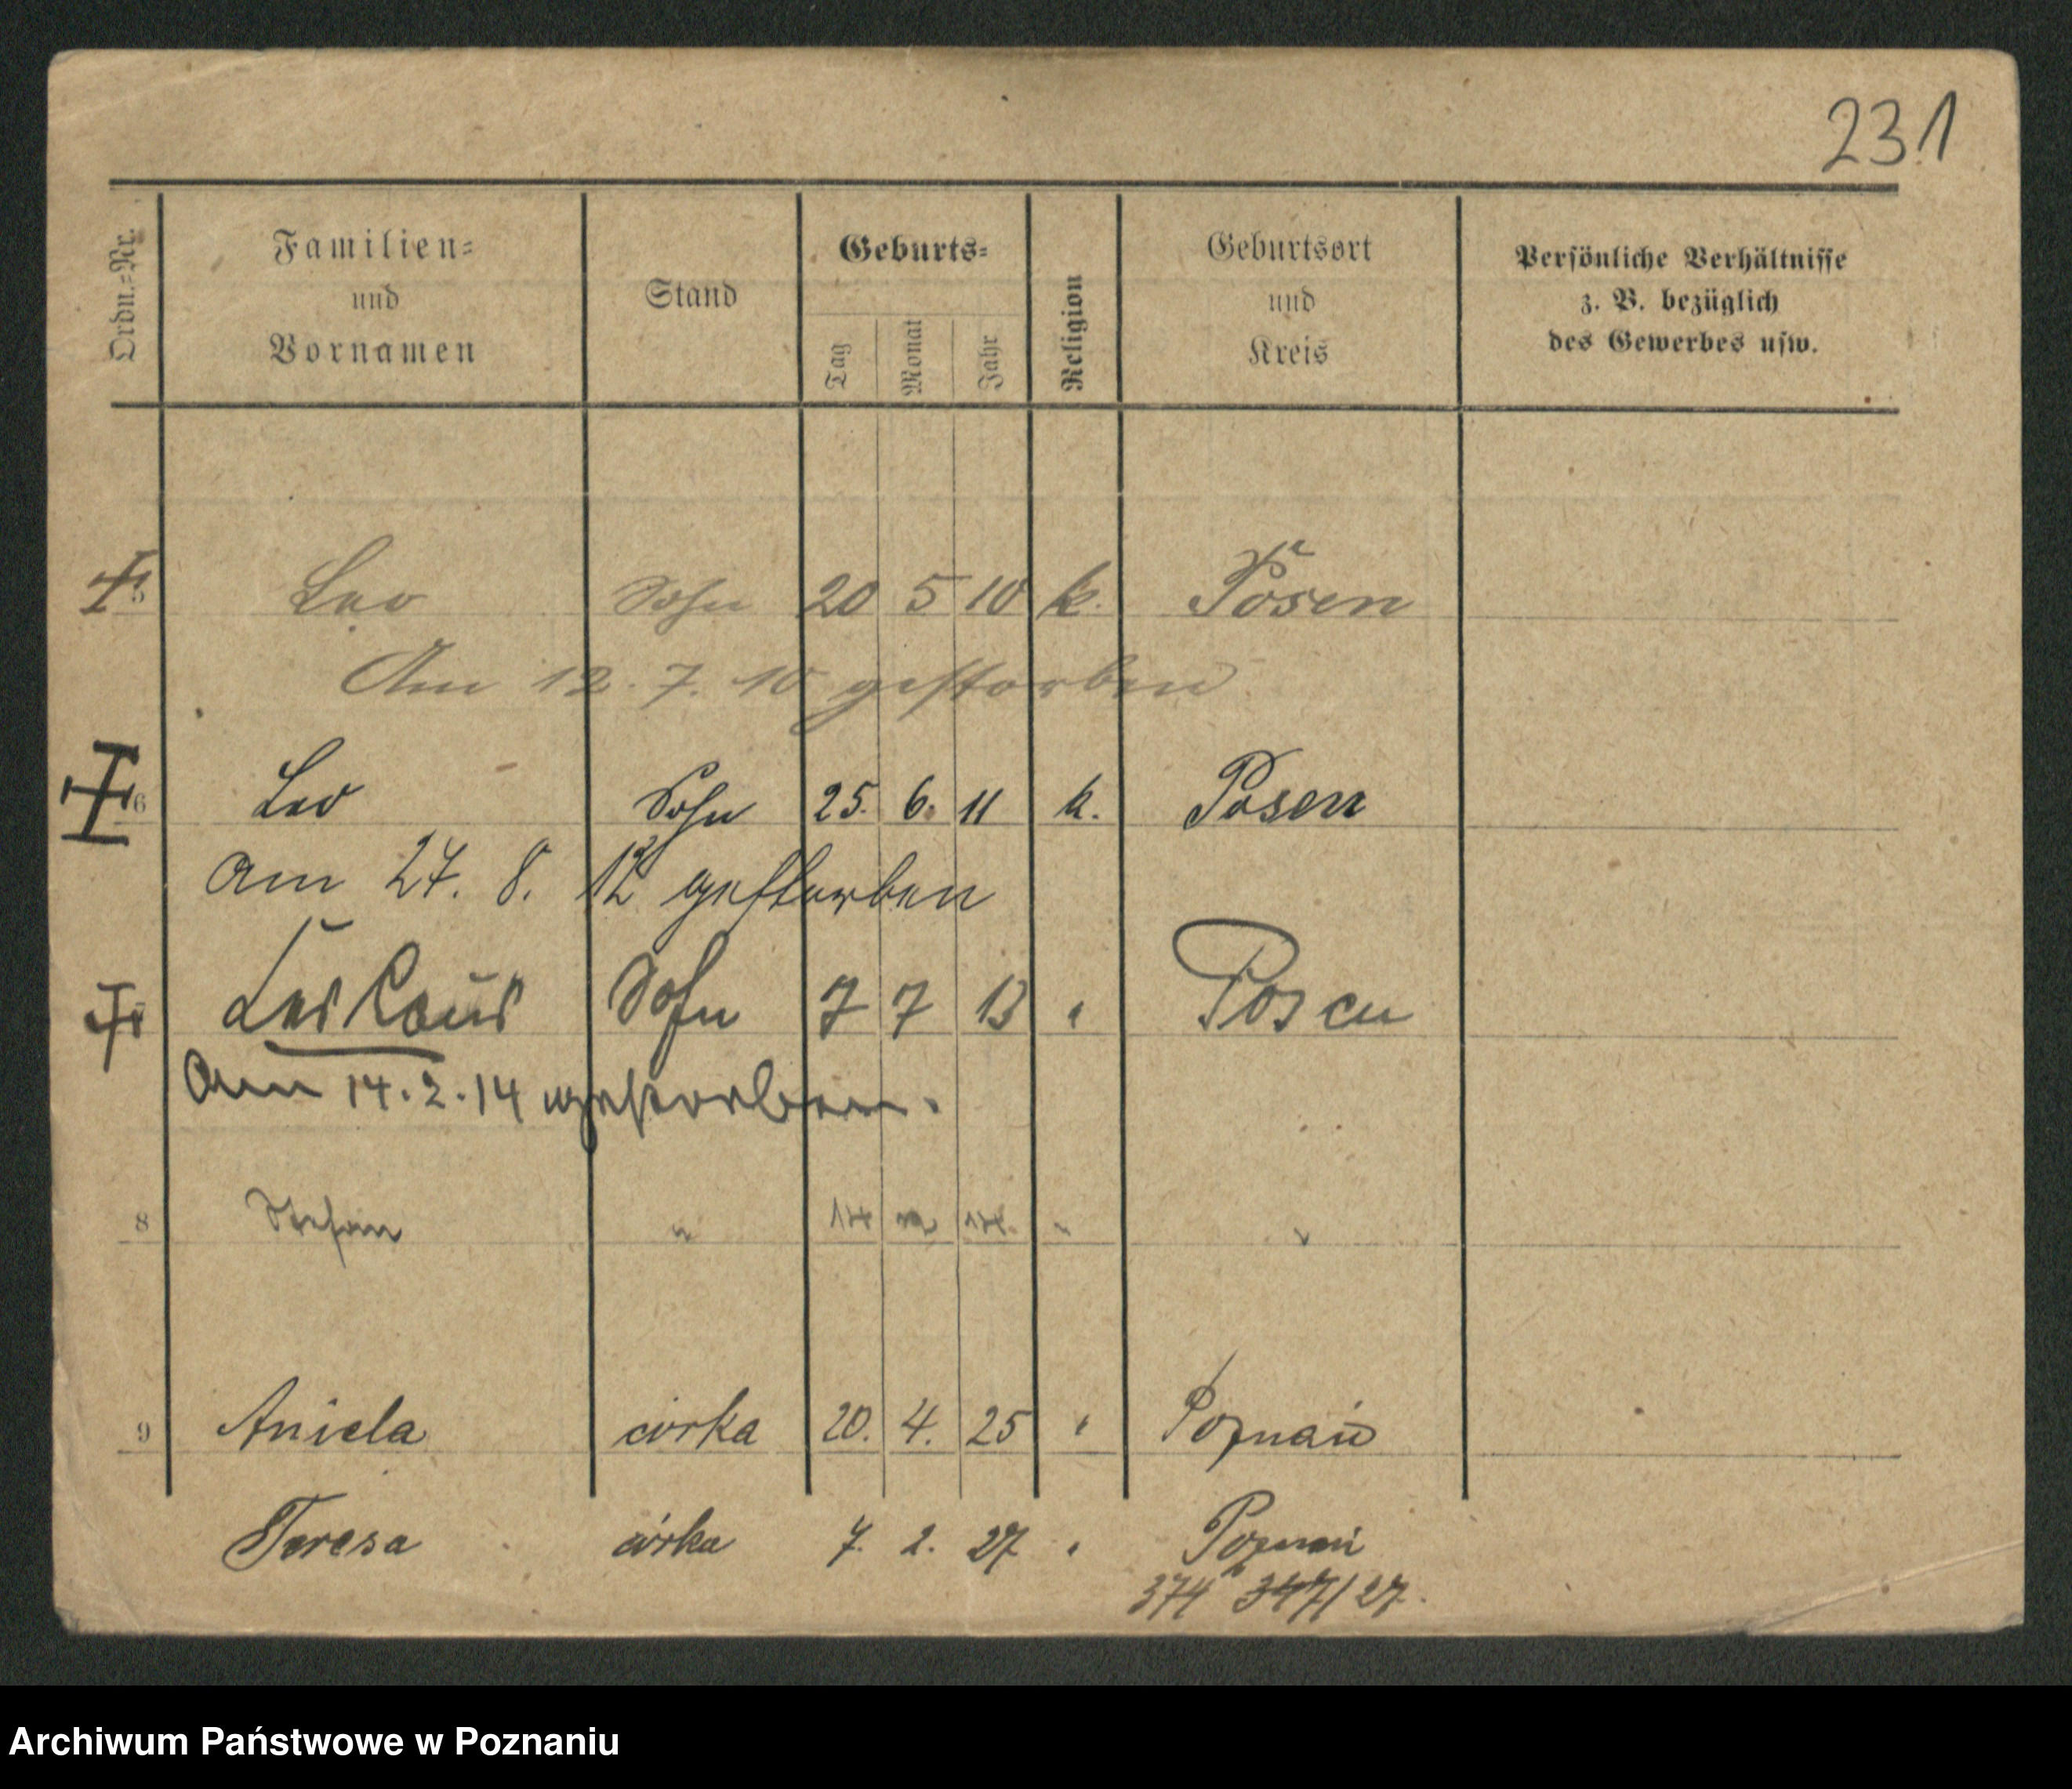 231
Ordn.=Nr. Familien= und Vornamen Stand Geburts= Tag Monat Jahr Religion Geburtsort und Kreis Persönliche Verhältnisse z. B. bezüglich des Gewerbes usw.
5 Leo Sohn 20 5 10 k. Posen
Am 12. 7. 10 gestorben
6 Leo Sohn 25. 6. 11 k. Posen
Am 27. 8. 12 gestorben
7 Sohn 7 7 13 " Posen
Am 14. 2. 14 gestorben.
8 Stefan " 14 14. " "
9 Aniela córka 20. 4. 25 " Poznań
Teresa córka 7. 2. 27 " Poznań
374 347/27.
Archiwum Państwowe w Poznaniu